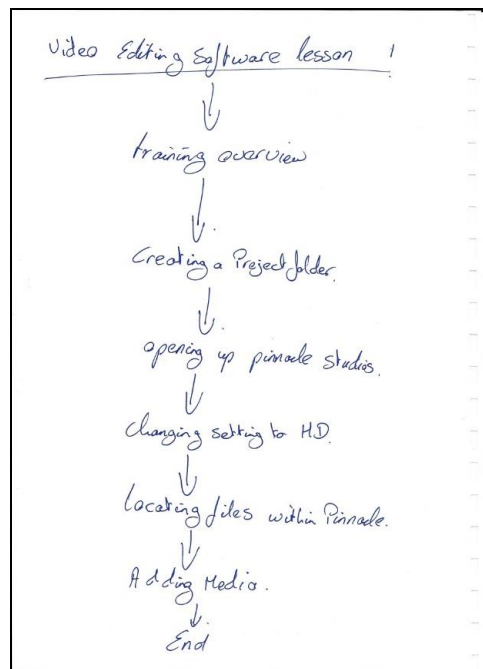 Video Editing Software lesson 1
training overview
Creating a Project folder.
opening up pinnacle studios.
Changing setting to HD.
Locating files within Pinnacle.
Adding Media.
End